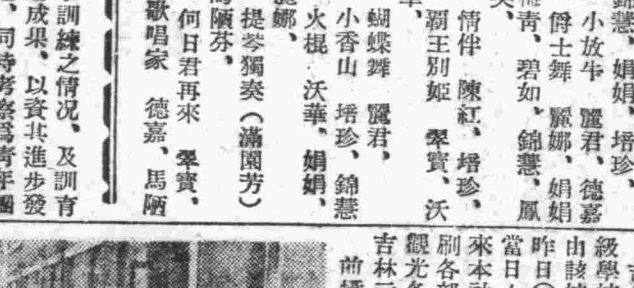 錦慧、娟娟、培珍、
小放牛 麗君、德嘉
爵士舞 麗娜、娟娟
青、碧如、錦慧、鳳
情伴 陳紅、培珍、
霸王別姬 翠寶、沃
蝴蝶舞 麗君、
小香山 培珍、錦慧
火棍 沃華、娟娟、
麗娜、
提琴獨奏(滿園芳)
馬陋芬、
何日君再來 翠寶、
歌唱家 德嘉、馬陋
訓練之情况、及訓育
成果、以資其進步發
同時考察爲青年團
級學
由該
昨日
當日
來本社
刷各部
觀光各
吉林
前